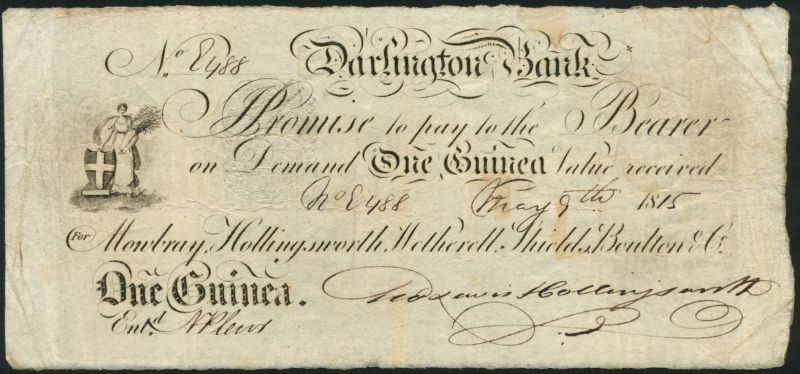 No E488 Darlington Bank
I Promise to pay to the Bearer
on Demand One Guinea Value received
No E488 May 9th 1815
For Mowbray, Hollingsworth, Wetherell, Shields, Boulton & Co.
One Guinea. Lewis Hollingsworth
Entd.